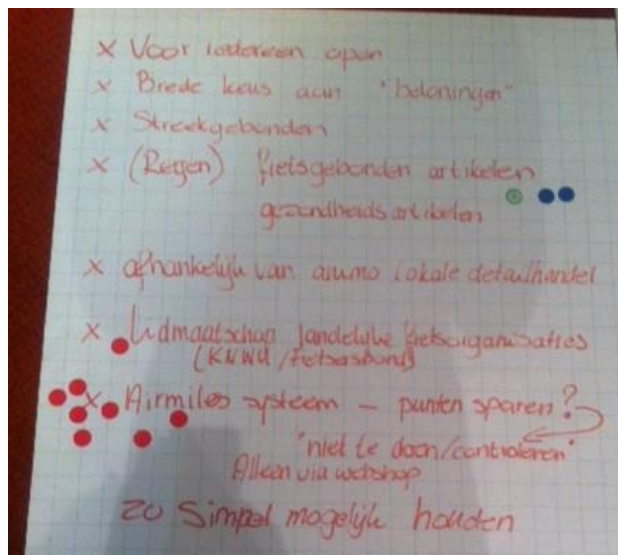 x Voor iedereen open
x Brede keus aan "beloningen"
x Streekgebonden
x (Regen) fietsgebonden artikelen
gezondheidsartikelen
x afhankelijk van animo lokale detailhandel
x Lidmaatschap landelijke fietsorganisaties
(KNWU/Fietsersbond)
x Airmiles systeem – punten sparen?
"niet te doen/controleren"
Alleen via webshop
zo simpel mogelijk houden